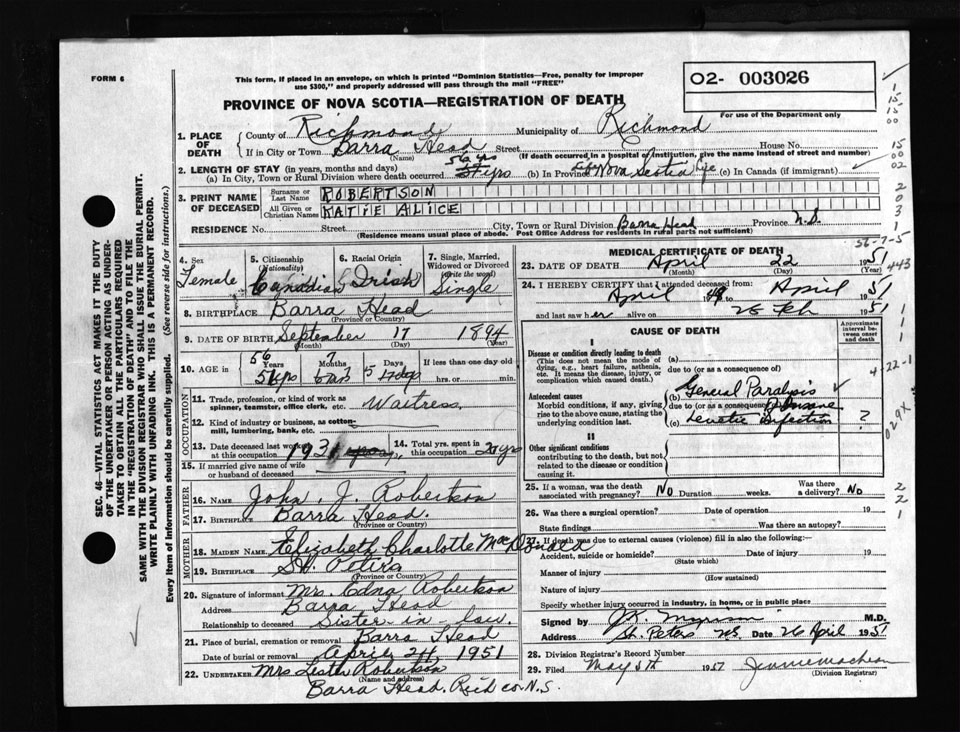 FORM 6
This form, if placed in an envelope, on which is printed "Dominion Statistics—Free, penalty for improper
use $300," and properly addressed will pass through the mail "FREE"
PROVINCE OF NOVA SCOTIA—REGISTRATION OF DEATH
02- 003026
For use of the Department only
1. PLACE OF DEATH County of Richmond Municipality of Richmond
If in City or Town Barra Head Street House No.
(Name) (If death occurred in a hospital or institution, give the name instead of street and number)
2. LENGTH OF STAY (in years, months and days) 56 yrs
(a) In City, Town or Rural Division where death occurred 57 yrs (b) In Province Nova Scotia Life (c) In Canada (if immigrant)
3. PRINT NAME OF DECEASED Surname or Last Name ROBERTSON
All Given or Christian Names KATIE ALICE
RESIDENCE No. Street City, Town or Rural Division Barra Head Province N.S.
(Residence means usual place of abode. Post Office Address for residents in rural parts not sufficient)
4. Sex Female
5. Citizenship (Nationality) Canadian
6. Racial Origin Irish
7. Single, Married, Widowed or Divorced (Write the word) Single
8. BIRTHPLACE Barra Head
(Province or Country)
9. DATE OF BIRTH September 17 1894
(Month) (Day) (Year)
10. AGE in 56 Years 7 Months 5 Days If less than one day old
hrs. or min.
11. Trade, profession, or kind of work as spinner, teamster, office clerk, etc. Waitress
12. Kind of industry or business, as cotton-mill, lumbering, bank, etc.
13. Date deceased last worked at this occupation 1931
14. Total yrs. spent in this occupation 2 yrs
15. If married give name of wife or husband of deceased
FATHER
16. NAME John J. Robertson
17. BIRTHPLACE Barra Head.
(Province or Country)
MOTHER
18. MAIDEN NAME Elizabeth Charlotte MacDonald
19. BIRTHPLACE St. Peters
(Province or Country)
20. Signature of informant Mrs. Edna Robertson
Address Barra Head
Relationship to deceased Sister in law.
21. Place of burial, cremation or removal Barra Head
Date of burial or removal April 24, 1951
22. UNDERTAKER Mrs Lester Robertson
(Name and address)
Barra Head. Rich co. N.S.
MEDICAL CERTIFICATE OF DEATH
23. DATE OF DEATH April 22 1951
(Month) (Day) (Year)
24. I HEREBY CERTIFY that I attended deceased from:
April 1949 to April 1951
and last saw her alive on 28 Feb 1951
CAUSE OF DEATH
Approximate interval between onset and death
I
Disease or condition directly leading to death (a)
(This does not mean the mode of dying, e.g., heart failure, asthenia, etc. It means the disease, injury, or complication which caused death.)
due to (or as a consequence of)
Antecedent causes (b) General Paralysis
Morbid conditions, if any, giving rise to the above cause, stating the underlying condition last.
due to (or as a consequence of) Insane
(c) Leuetic Infection ?
II
Other significant conditions
contributing to the death, but not related to the disease or condition causing it.
25. If a woman, was the death associated with pregnancy? No Duration weeks. Was there a delivery? No
26. Was there a surgical operation? Date of operation 19
State findings Was there an autopsy?
27. If death was due to external causes (violence) fill in also the following:—
Accident, suicide or homicide? Date of injury 19
(State which)
Manner of injury
(How sustained)
Nature of injury
Specify whether injury occurred in industry, in home, or in public place
Signed by M.D.
Address St. Peters NS. Date 26 April 1951
28. Division Registrar's Record Number
29. Filed May 5th 1951 Jennie MacLean
(Division Registrar)
SEC. 46—VITAL STATISTICS ACT MAKES IT THE DUTY
OF THE UNDERTAKER OR PERSON ACTING AS UNDER-
TAKER TO OBTAIN ALL THE PARTICULARS REQUIRED
IN THE "REGISTRATION OF DEATH" AND TO FILE THE
SAME WITH THE DIVISION REGISTRAR WHO SHALL ISSUE THE BURIAL PERMIT.
WRITE PLAINLY WITH UNFADING INK. THIS IS A PERMANENT RECORD.
Every item of Information should be carefully supplied. (See reverse side for instructions.)
OCCUPATION
56-7-5
443
4-22-1
029X